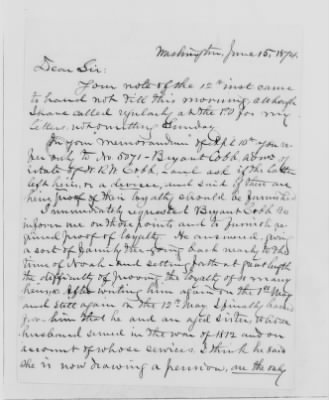 Washington, June 15, 1874.
Dear Sir:
Your note of the 12th inst came
to hand not till this morning, although
I have called regularly at the P.O for my
letters, not omitting Sunday.
In your memorandum of Apl 10th you re-
fer only to No 5971 - Bryant Cobb, admr. of
estate of W. R. W. Cobb, and ask if the latter
left heirs, or a devisee, and said if there are
heirs proof of their loyalty should be furnished
I immediately requested Bryant Cobb to
inform me on those points and to furnish re-
quired proof of loyalty. He answered, giving
a sort of family tree going back nearly to the
time of Noah - and setting forth at great length
the difficulty of proving the loyalty of so many
heirs. After writing him again on the 1st May
and still again on the 12th May I finally heard
from him that he and an aged sister, to whose
husband served in the war of 1812 and on
account of whose services, I think he said
she is now drawing a pension, are the only